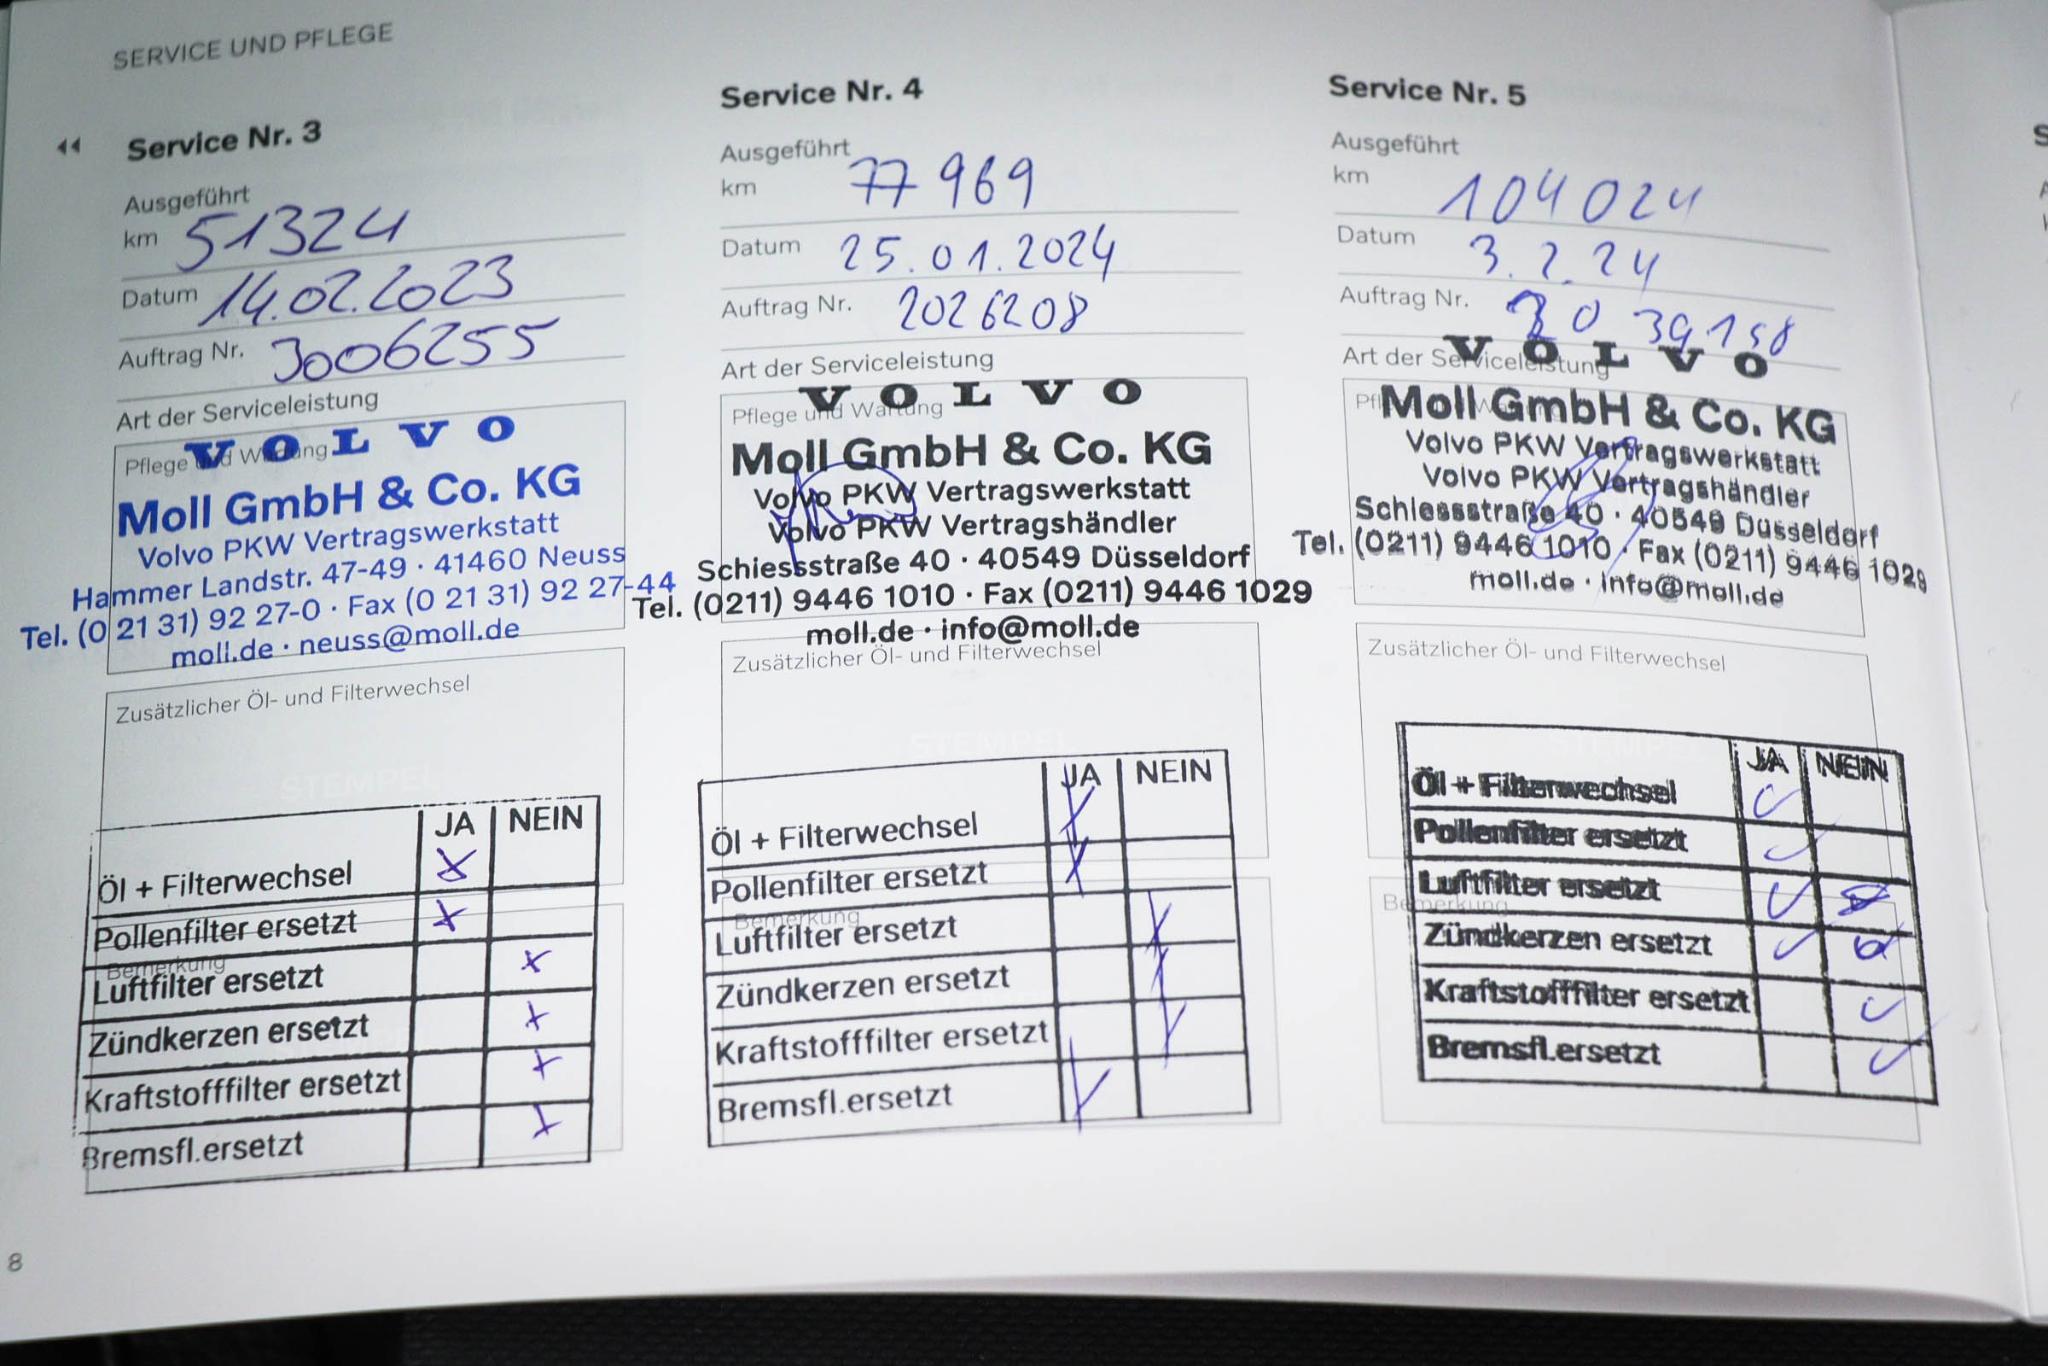 SERVICE UND PFLEGE
Service Nr. 3
Ausgeführt
km 51324
Datum 14.02.2023
Auftrag Nr. 3006255
Art der Serviceleistung
Pflege und Wartung
VOLVO
Moll GmbH & Co. KG
Volvo PKW Vertragswerkstatt
Hammer Landstr. 47-49 · 41460 Neuss
Tel. (0 21 31) 92 27-0 · Fax (0 21 31) 92 27-44
moll.de · neuss@moll.de
Zusätzlicher Öl- und Filterwechsel
STEMPEL
JA NEIN
Öl + Filterwechsel
Pollenfilter ersetzt
Bemerkung
Luftfilter ersetzt
Zündkerzen ersetzt
Kraftstofffilter ersetzt
Bremsfl.ersetzt
Service Nr. 4
Ausgeführt
km 77969
Datum 25.01.2024
Auftrag Nr. 2026208
Art der Serviceleistung
Pflege und Wartung
VOLVO
Moll GmbH & Co. KG
Volvo PKW Vertragswerkstatt
Volvo PKW Vertragshändler
Schiessstraße 40 · 40549 Düsseldorf
Tel. (0211) 9446 1010 · Fax (0211) 9446 1029
moll.de · info@moll.de
Zusätzlicher Öl- und Filterwechsel
STEMPEL
JA NEIN
Öl + Filterwechsel
Pollenfilter ersetzt
Bemerkung
Luftfilter ersetzt
Zündkerzen ersetzt
Kraftstofffilter ersetzt
Bremsfl.ersetzt
Service Nr. 5
Ausgeführt
km 104024
Datum 3.2.24
Auftrag Nr.
Art der Serviceleistung
VOLVO
Moll GmbH & Co. KG
Volvo PKW Vertragswerkstatt
Volvo PKW Vertragshändler
Schiessstraße 40 · 40549 Düsseldorf
Tel. (0211) 9446 1010 · Fax (0211) 9446 1029
moll.de · info@moll.de
Zusätzlicher Öl- und Filterwechsel
JA NEIN
Öl + Filterwechsel
Pollenfilter ersetzt
Luftfilter ersetzt
Bemerkung
Zündkerzen ersetzt
Kraftstofffilter ersetzt
Bremsfl.ersetzt
8